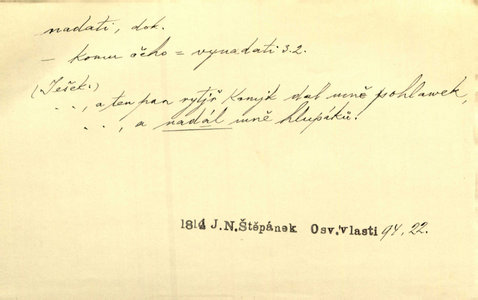 nadati, dok.
– komu čeho = vynadati 3.2.
(Ješek:)
..., a ten pan rytjř Konyjk dal mně pohlawek,
..., a nadál mně hlupáků.
1814 J.N.Štěpánek Osv.vlasti 94, 22.